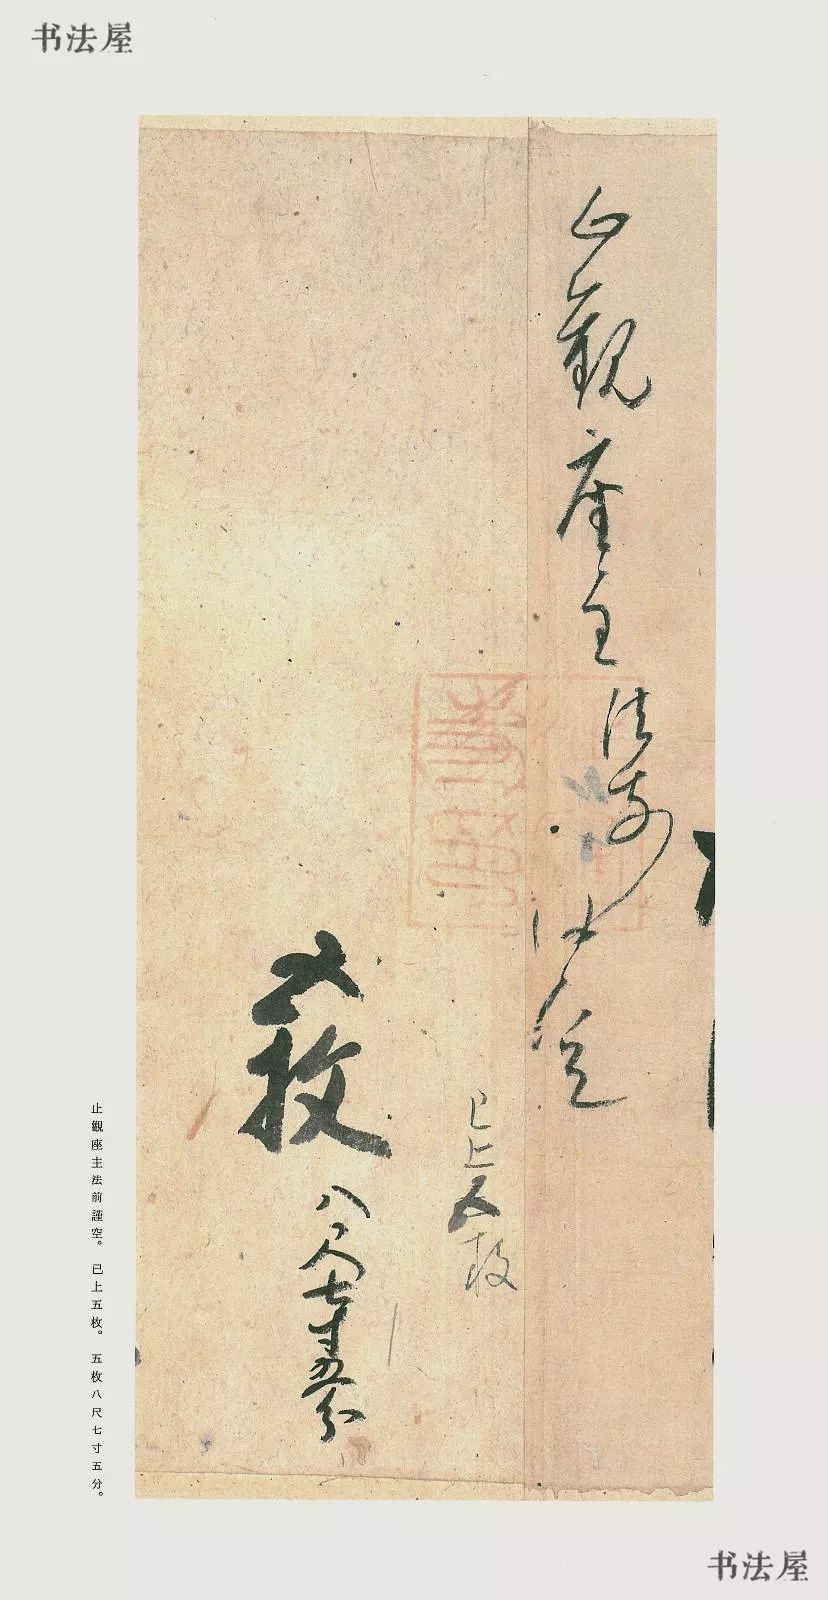 书法屋
止觀座主法前謹空
已上五枚
五枚
八尺七寸五分
止觀座主法前謹空。已上五枚。五枚八尺七寸五分。
书法屋